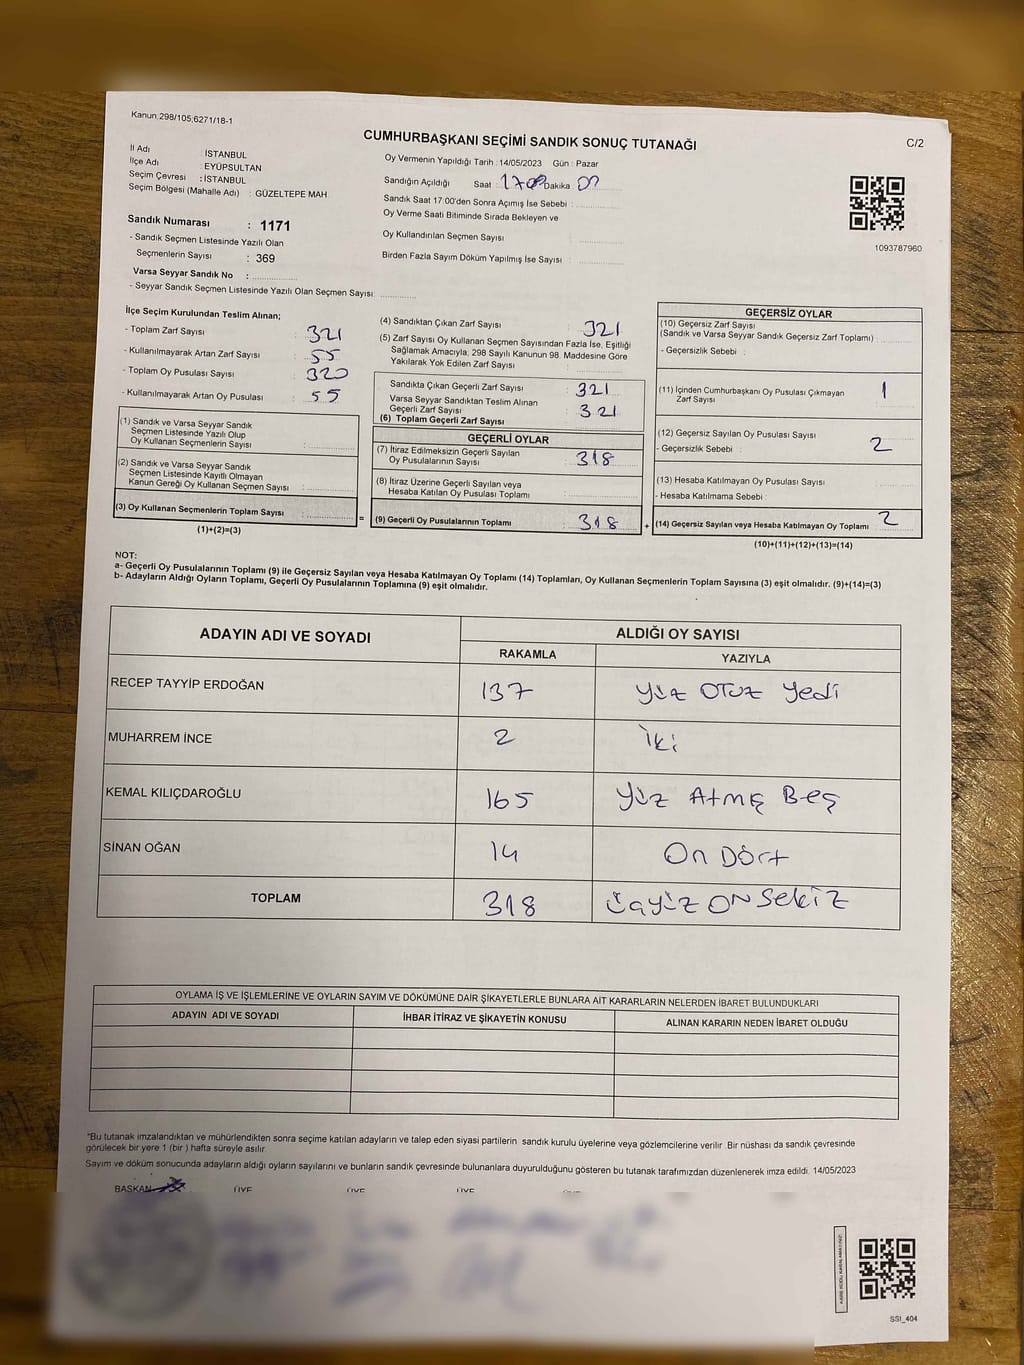 Kanun.298/105;6271/18-1
CUMHURBAŞKANI SEÇİMİ SANDIK SONUÇ TUTANAĞI
C/2
İl Adı : İSTANBUL
İlçe Adı : EYÜPSULTAN
Seçim Çevresi : İSTANBUL
Seçim Bölgesi (Mahalle Adı) : GÜZELTEPE MAH
Sandık Numarası : 1171
- Sandık Seçmen Listesinde Yazılı Olan
Seçmenlerin Sayısı : 369
Varsa Seyyar Sandık No :
- Seyyar Sandık Seçmen Listesinde Yazılı Olan Seçmen Sayısı:
Oy Vermenin Yapıldığı Tarih : 14/05/2023 Gün : Pazar
Sandığın Açıldığı Saat : Dakika :
Sandık Saat 17:00'den Sonra Açımış İse Sebebi :
Oy Verme Saati Bitiminde Sırada Bekleyen ve
Oy Kullandırılan Seçmen Sayısı :
Birden Fazla Sayım Döküm Yapılmış İse Sayısı :
1093787960
İlçe Seçim Kurulundan Teslim Alınan;
- Toplam Zarf Sayısı : 321
- Kullanılmayarak Artan Zarf Sayısı : 55
- Toplam Oy Pusulası Sayısı : 320
- Kullanılmayarak Artan Oy Pusulası : 55
(1) Sandık ve Varsa Seyyar Sandık
Seçmen Listesinde Yazılı Olup
Oy Kullanan Seçmenlerin Sayısı :
(2) Sandık ve Varsa Seyyar Sandık
Seçmen Listesinde Kayıtlı Olmayan
Kanun Gereği Oy Kullanan Seçmen Sayısı :
(3) Oy Kullanan Seçmenlerin Toplam Sayısı :
(1)+(2)=(3)
=
(4) Sandıktan Çıkan Zarf Sayısı : 321
(5) Zarf Sayısı Oy Kullanan Seçmen Sayısından Fazla İse, Eşitliği
Sağlamak Amacıyla, 298 Sayılı Kanunun 98. Maddesine Göre
Yakılarak Yok Edilen Zarf Sayısı :
Sandıkta Çıkan Geçerli Zarf Sayısı : 321
Varsa Seyyar Sandıktan Teslim Alınan
Geçerli Zarf Sayısı : 321
(6) Toplam Geçerli Zarf Sayısı
GEÇERLİ OYLAR
(7) İtiraz Edilmeksizin Geçerli Sayılan
Oy Pusulalarının Sayısı : 318
(8) İtiraz Üzerine Geçerli Sayılan veya
Hesaba Katılan Oy Pusulası Toplamı :
(9) Geçerli Oy Pusulalarının Toplamı : 318
+
GEÇERSİZ OYLAR
(10) Geçersiz Zarf Sayısı
(Sandık ve Varsa Seyyar Sandık Geçersiz Zarf Toplamı) :
- Geçersizlik Sebebi :
(11) İçinden Cumhurbaşkanı Oy Pusulası Çıkmayan
Zarf Sayısı : 1
(12) Geçersiz Sayılan Oy Pusulası Sayısı : 2
- Geçersizlik Sebebi :
(13) Hesaba Katılmayan Oy Pusulası Sayısı :
- Hesaba Katılmama Sebebi :
(14) Geçersiz Sayılan veya Hesaba Katılmayan Oy Toplamı : 2
(10)+(11)+(12)+(13)=(14)
NOT:
a- Geçerli Oy Pusulalarının Toplamı (9) ile Geçersiz Sayılan veya Hesaba Katılmayan Oy Toplamı (14) Toplamları, Oy Kullanan Seçmenlerin Toplam Sayısına (3) eşit olmalıdır. (9)+(14)=(3)
b- Adayların Aldığı Oyların Toplamı, Geçerli Oy Pusulalarının Toplamına (9) eşit olmalıdır.
ADAYIN ADI VE SOYADI ALDIĞI OY SAYISI
RAKAMLA YAZIYLA
RECEP TAYYİP ERDOĞAN 137 Yüz OTuz Yedi
MUHARREM İNCE 2 İki
KEMAL KILIÇDAROĞLU 165 Yüz Atmış Beş
SİNAN OĞAN 14 On Dört
TOPLAM 318 üçyüz ON Sekiz
OYLAMA İŞ VE İŞLEMLERİNE VE OYLARIN SAYIM VE DÖKÜMÜNE DAİR ŞİKAYETLERLE BUNLARA AİT KARARLARIN NELERDEN İBARET BULUNDUKLARI
ADAYIN ADI VE SOYADI İHBAR İTİRAZ VE ŞİKAYETİN KONUSU ALINAN KARARIN NEDEN İBARET OLDUĞU
*Bu tutanak imzalandıktan ve mühürlendikten sonra seçime katılan adayların ve talep eden siyasi partilerin sandık kurulu üyelerine veya gözlemcilerine verilir. Bir nüshası da sandık çevresinde
görülecek bir yere 1 (bir ) hafta süreyle asılır.
Sayım ve döküm sonucunda adayların aldığı oyların sayılarını ve bunların sandık çevresinde bulunanlara duyurulduğunu gösteren bu tutanak tarafımızdan düzenlenerek imza edildi. 14/05/2023
BAŞKAN ÜYE ÜYE ÜYE
SSI_404